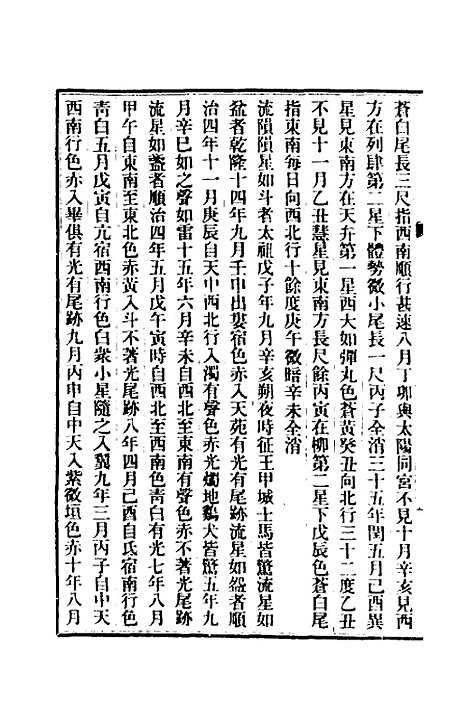 蒼白尾長三尺指西南順行甚速八月丁卯與太陽同宮不見十月辛亥見西
方在列肆第二星下體勢微小尾長一尺丙子全消三十五年閏五月己酉異
星見東南方在天弁第一星西大如彈丸色蒼黃癸丑向北行三十二度乙丑
不見十一月乙丑彗星見東南方長尺餘丙寅在柳第二星下戊辰色蒼白尾
指東南每日向西北行十餘度庚午微暗辛未全消
流隕隕星如斗者太祖戊子年九月辛亥朔夜時征王甲城士馬皆驚流星如
盆者乾隆十四年九月壬申出婁宿色赤入天苑有光有尾跡流星如盌者順
治四年十一月庚辰自天中西北行入濁有聲色赤光燭地鷄犬皆驚五年九
月辛巳如之聲如雷十五年六月辛未自西北至東南有聲色赤不著光尾跡
流星如盞者順治四年五月戊午寅時自西北至西南色青白有光七年八月
甲午自東南至東北色赤黃入斗不著光尾跡八年四月己酉自氐宿南行色
青白五月戊寅自亢宿西南行色白衆小星隨之入翼九年三月丙子自中天
西南行色赤入畢俱有光有尾跡九月丙申自中天入紫微垣色赤十年八月